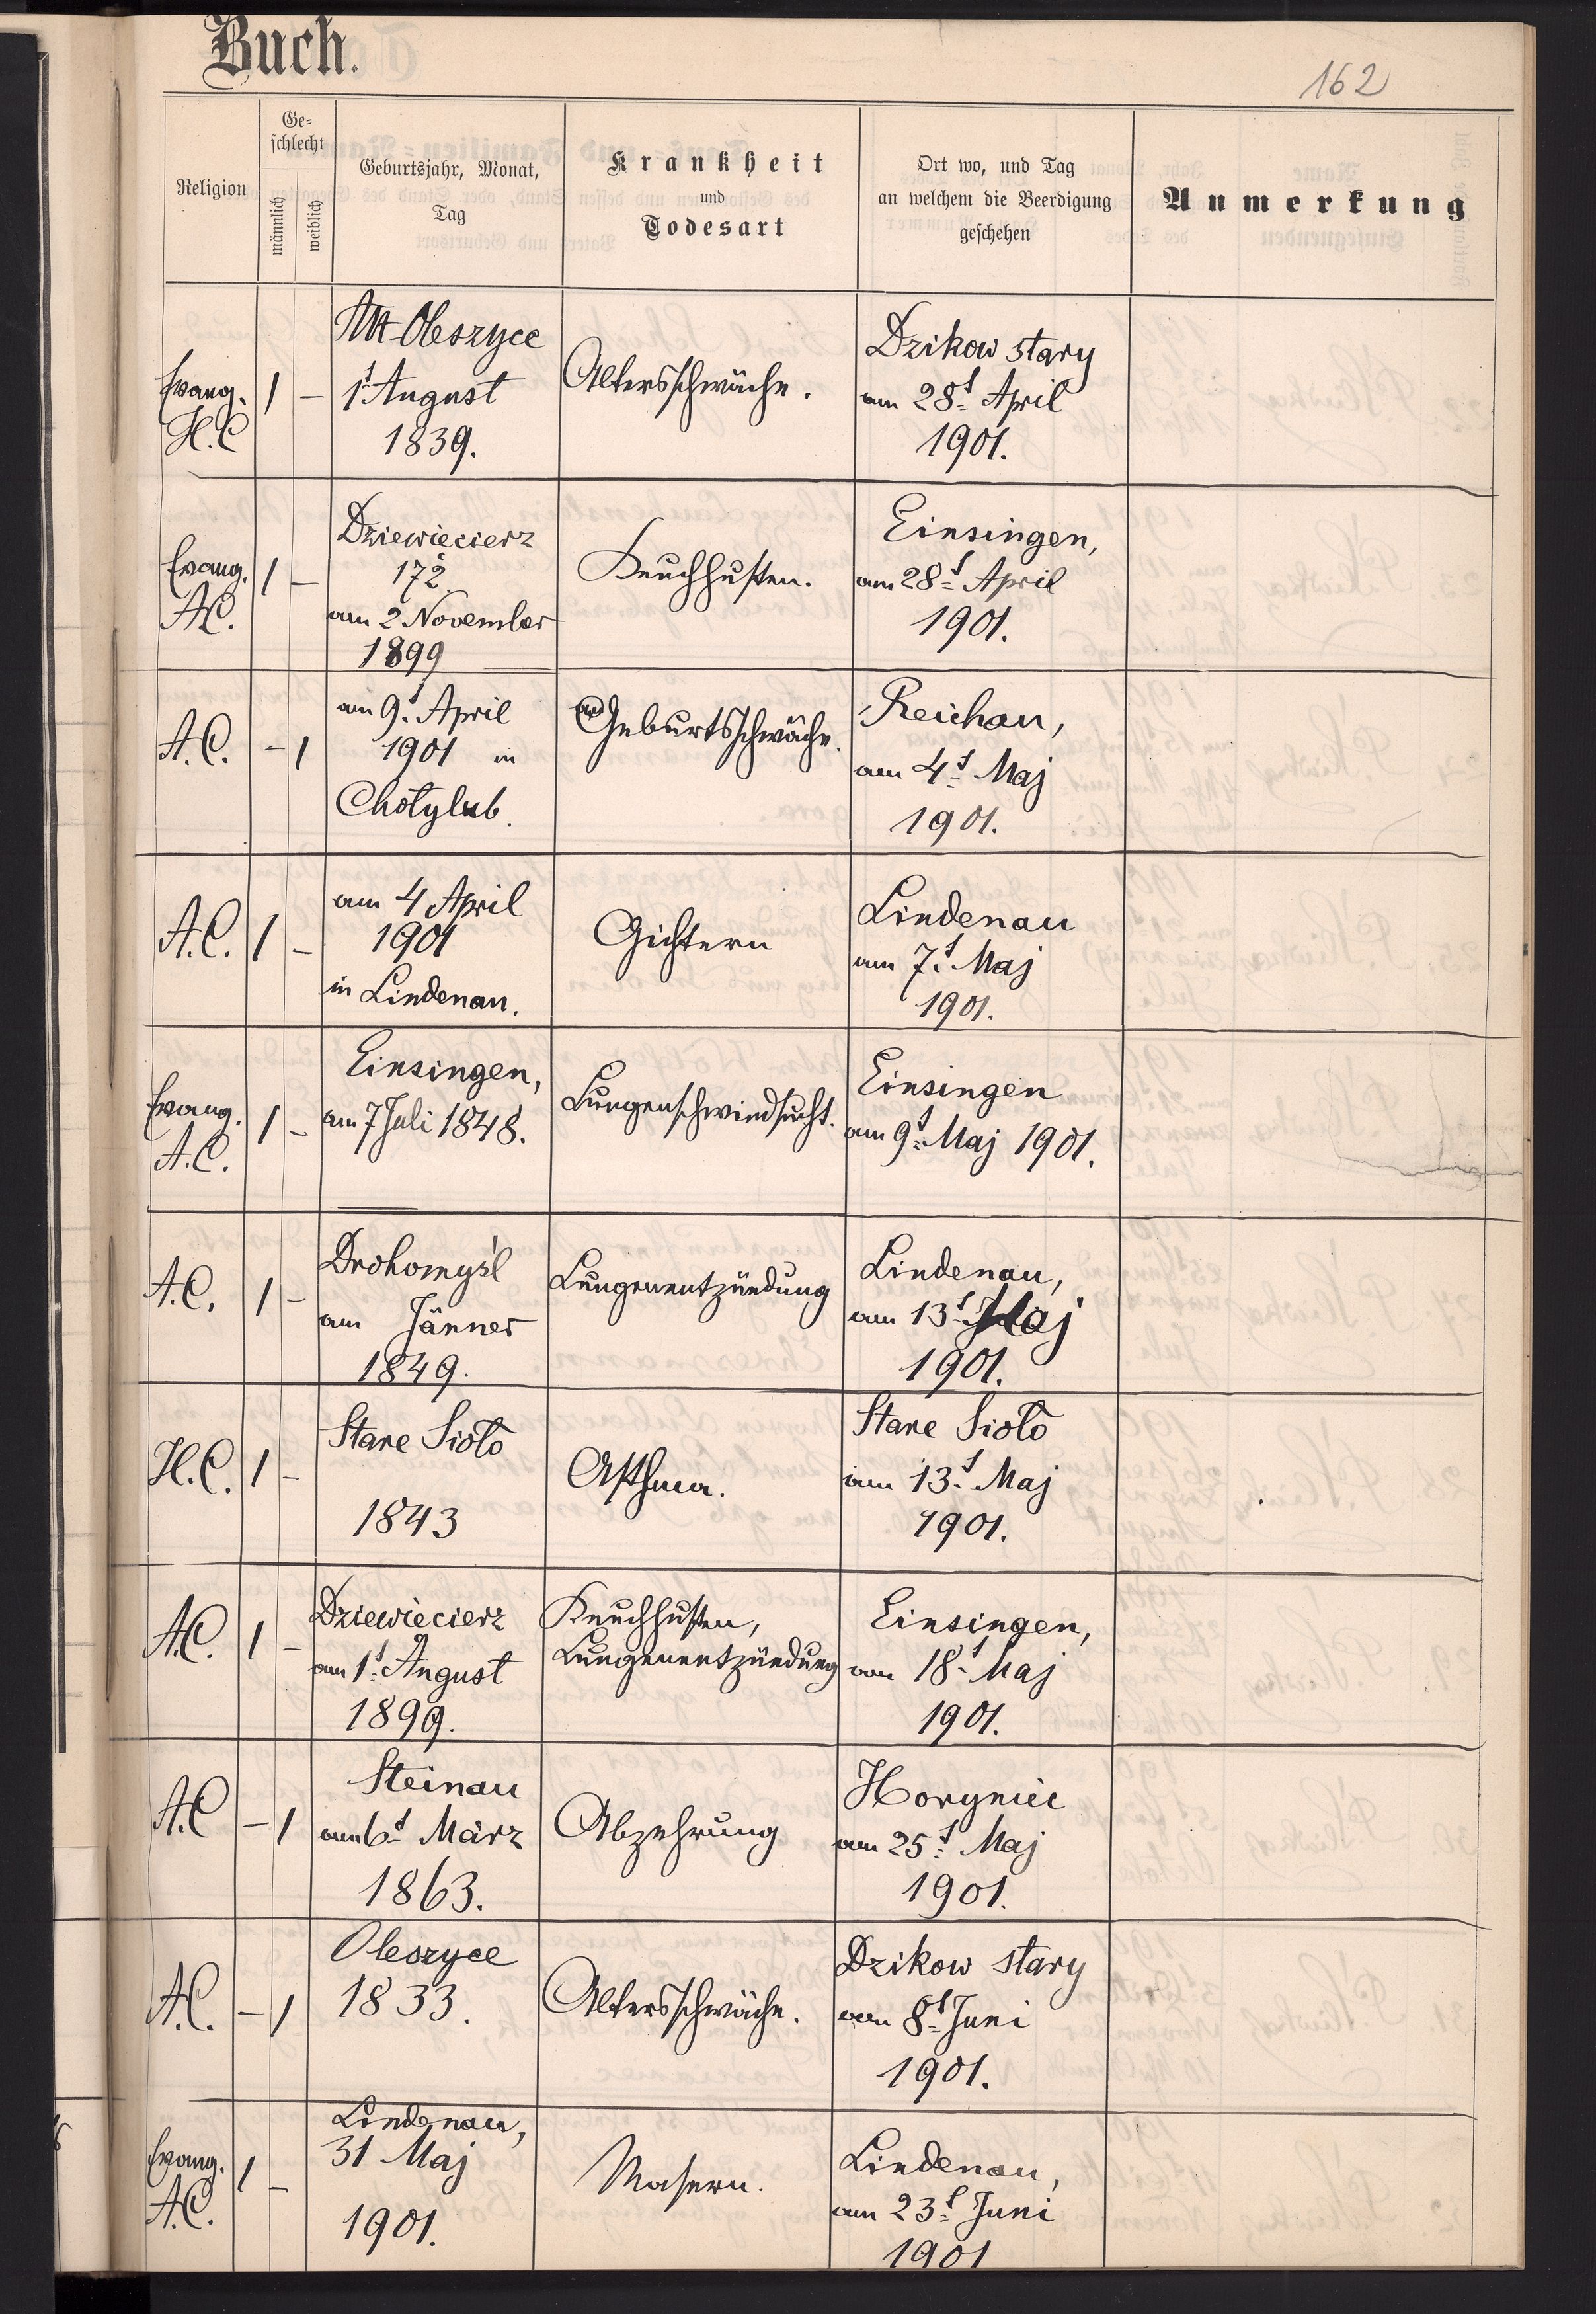 Buch.
162
Religion
Ge-
schlecht
männlich
weiblich
Geburtsjahr, Monat,
Tag
Krankheit
und
Todesart
Ort wo, und Tag
an welchem die Beerdigung
geschehen
Anmerkung
Evang.
H.C
1 –
Alt-Oleszyce
1t August
1839.
Altersschwäche.
Dzikow stary
am 28t April
1901.
Evang.
A.C.
1 –
Dziewiecierz
172
am 2 November
1899
Keuchhusten.
Einsingen,
am 28t April
1901.
A.C.
– 1
am 9t April
1901 in
Chotylub.
Geburtsschwäche.
Reichau,
am 4t Maj
1901.
A.C.
1 –
am 4 April
1901
in Lindenau.
Gichtern
Lindenau
am 7t Maj
1901.
Evang.
A.C.
1 –
Einsingen,
am 7 Juli 1848.
Lungenschwindsucht.
Einsingen
am 9t Maj 1901.
A.C.
1 –
Drohomyśl
am Jänner
1849.
Lungenentzündung
Lindenau,
am 13t Maj
1901.
H.C.
1 –
Stare Sioło
1843
Asthma.
Stare Sioło
am 13t Maj
1901.
A.C.
1 –
Dziewiecierz
am 1t August
1899.
Keuchhusten,
Lungenentzündung
Einsingen,
am 18t Maj
1901.
A.C
– 1
Steinau
am 6t März
1863.
Abzehrung
Horyniec
am 25t Maj
1901.
A.C.
– 1
Oleszyce
1833.
Altersschwäche.
Dzikow stary
am 8t Juni
1901.
Evang.
A.C.
1 –
Lindenau,
31 Maj
1901.
Masern.
Lindenau,
am 23t Juni
1901